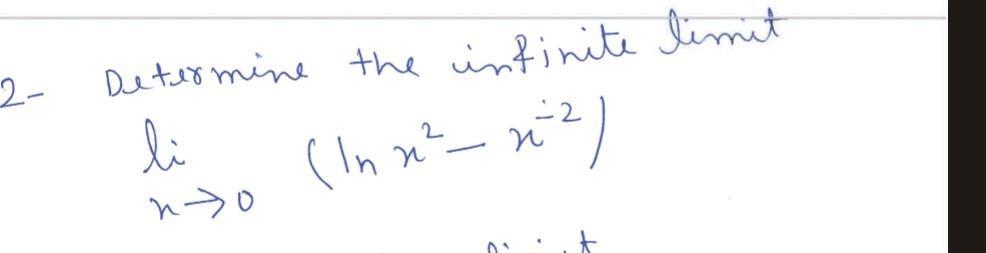 2- Determine the infinite limit
li (ln x² - x⁻²)
x→0